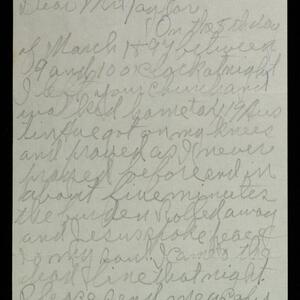 Dear Mr Taylor
On the 5th day
of March 1897 between
9 and 10 o clock at night
I left your church and
went
got on my knees
and prayed as I never
prayed before and in
about five minutes
the burden rolled away
and Jesus spoke peace
to my soul. I came the
dead line that night
Please send me a copy